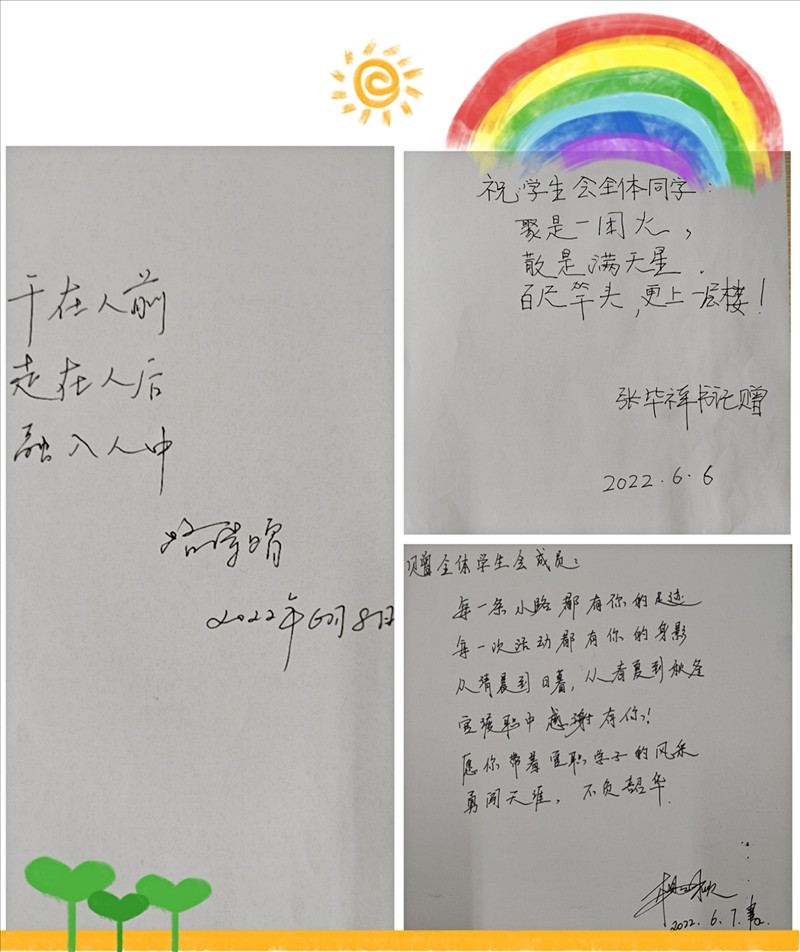 干在人前
走在人后
融入人中
2022年6月8日
祝学生会全体同学：
聚是一团火，
散是满天星．
百尺竿头，更上一层楼！
张华祥书记赠
2022．6．6
赠全体学生会成员：
每一条小路都有你的足迹
每一次活动都有你的身影
从清晨到日暮，从春夏到秋冬
宜职中感谢有你！
愿你带着宜职学子的风采
勇闯天涯，不负韶华．
2022．6．7．